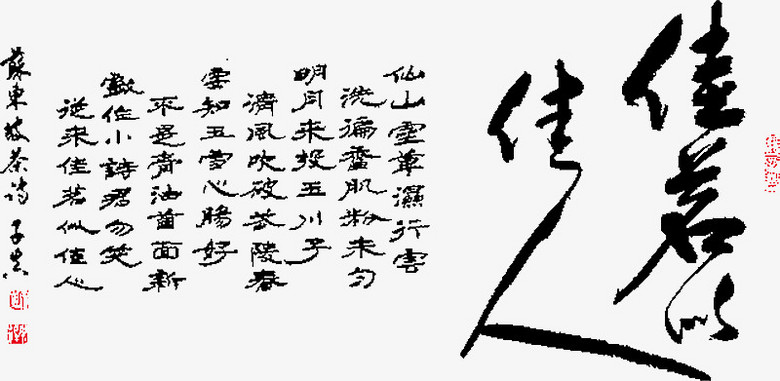 佳茗似
佳人
仙山靈草濕行雲
洗遍香肌粉未勻
明月來投玉川子
清風吹破武陵春
要知玉雪心腸好
不是膏油首面新
戲作小詩君勿笑
從來佳茗似佳人
蘇東坡茶詩 子